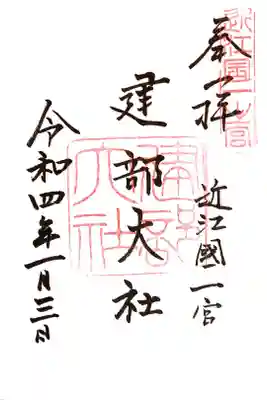 奉拝
近江國一宮
近江国一之宮
建部大社
建部大社
令和四年一月三日